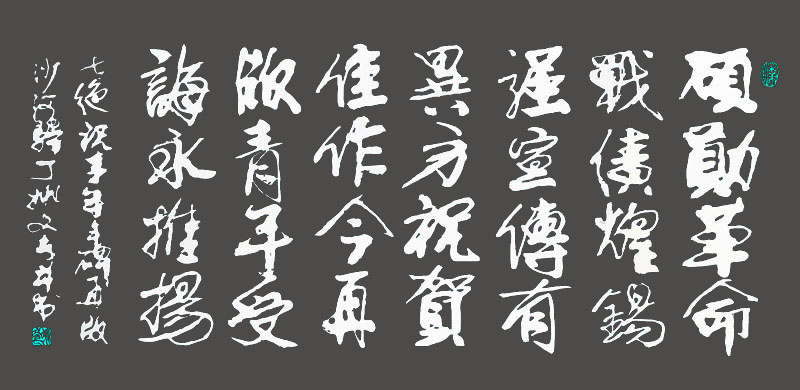 碩勛革命
戰績煌錫
謹宣傳有
異方祝賀
佳作今再
版青年受
誨永推揚
七絶祝再版
沙河